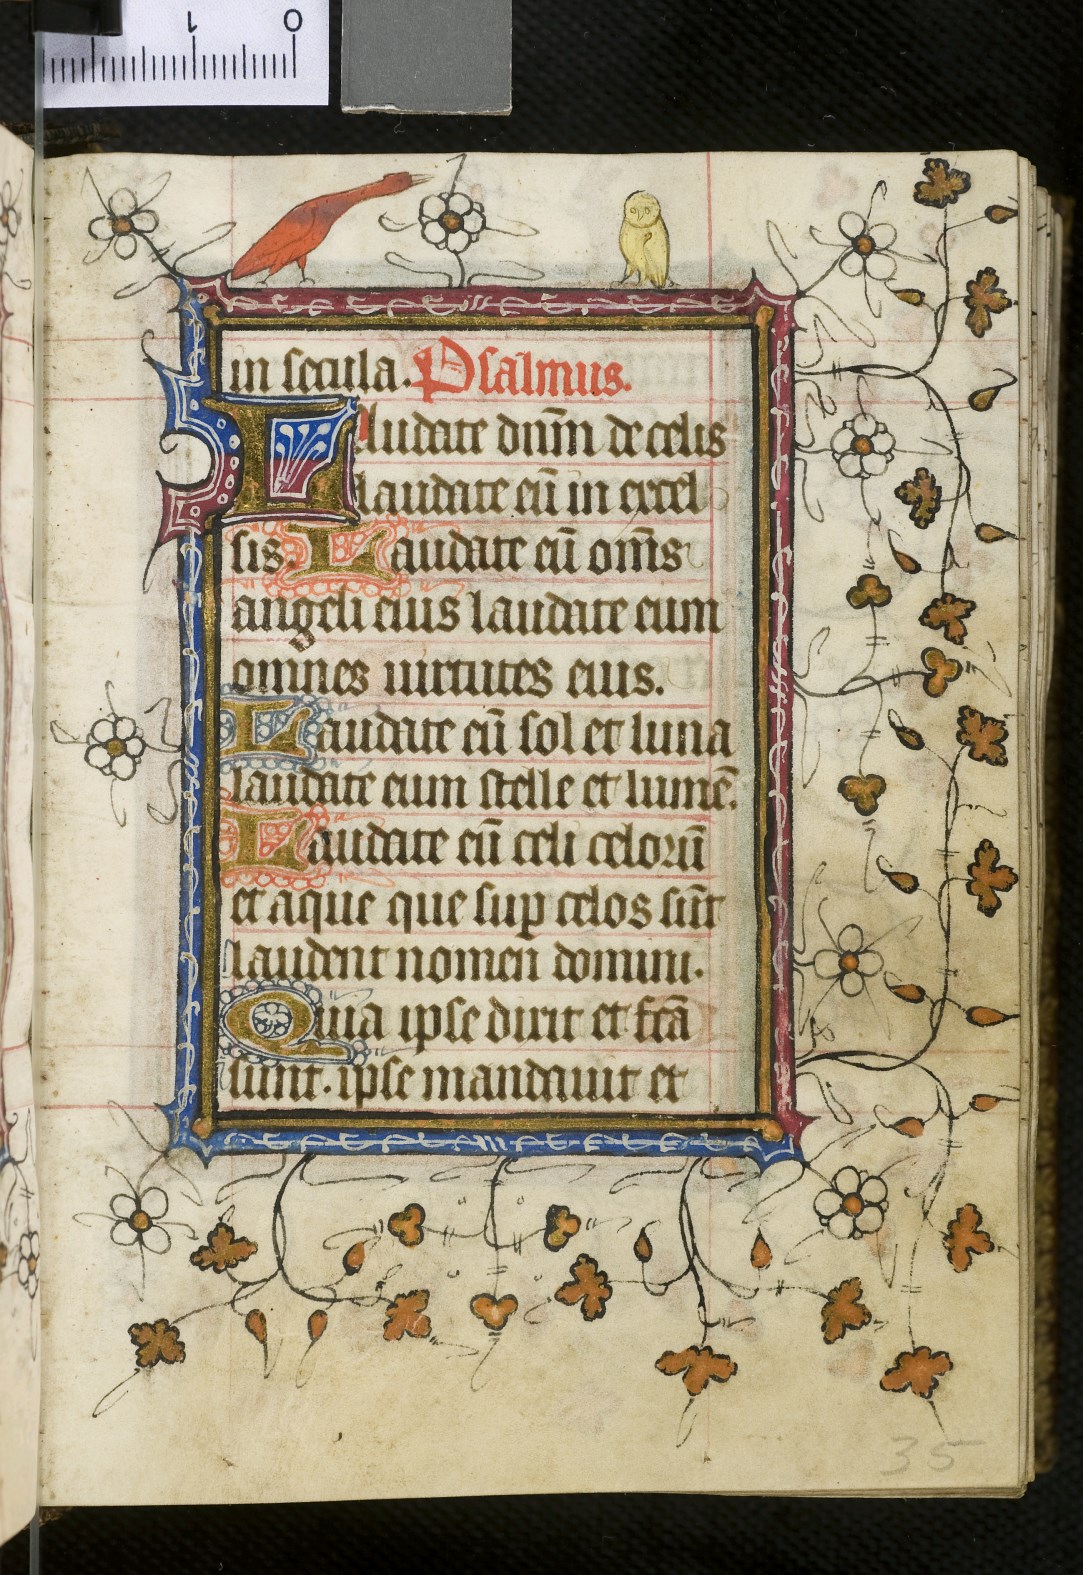 1 0
in secula. Psalmus.
Laudate dnm̄ de celis
laudate eū in excel
sis. Laudate eū om̄s
angeli eius laudate eum
omnes uirtutes eius.
Laudate eū sol et luna
laudate eum stelle et lumē.
Laudate eū celi celorū
et aque que suꝑ celos sūt
laudent nomen domini.
Quia ipse dixit et fcā
sunt. ipse mandauit et
35